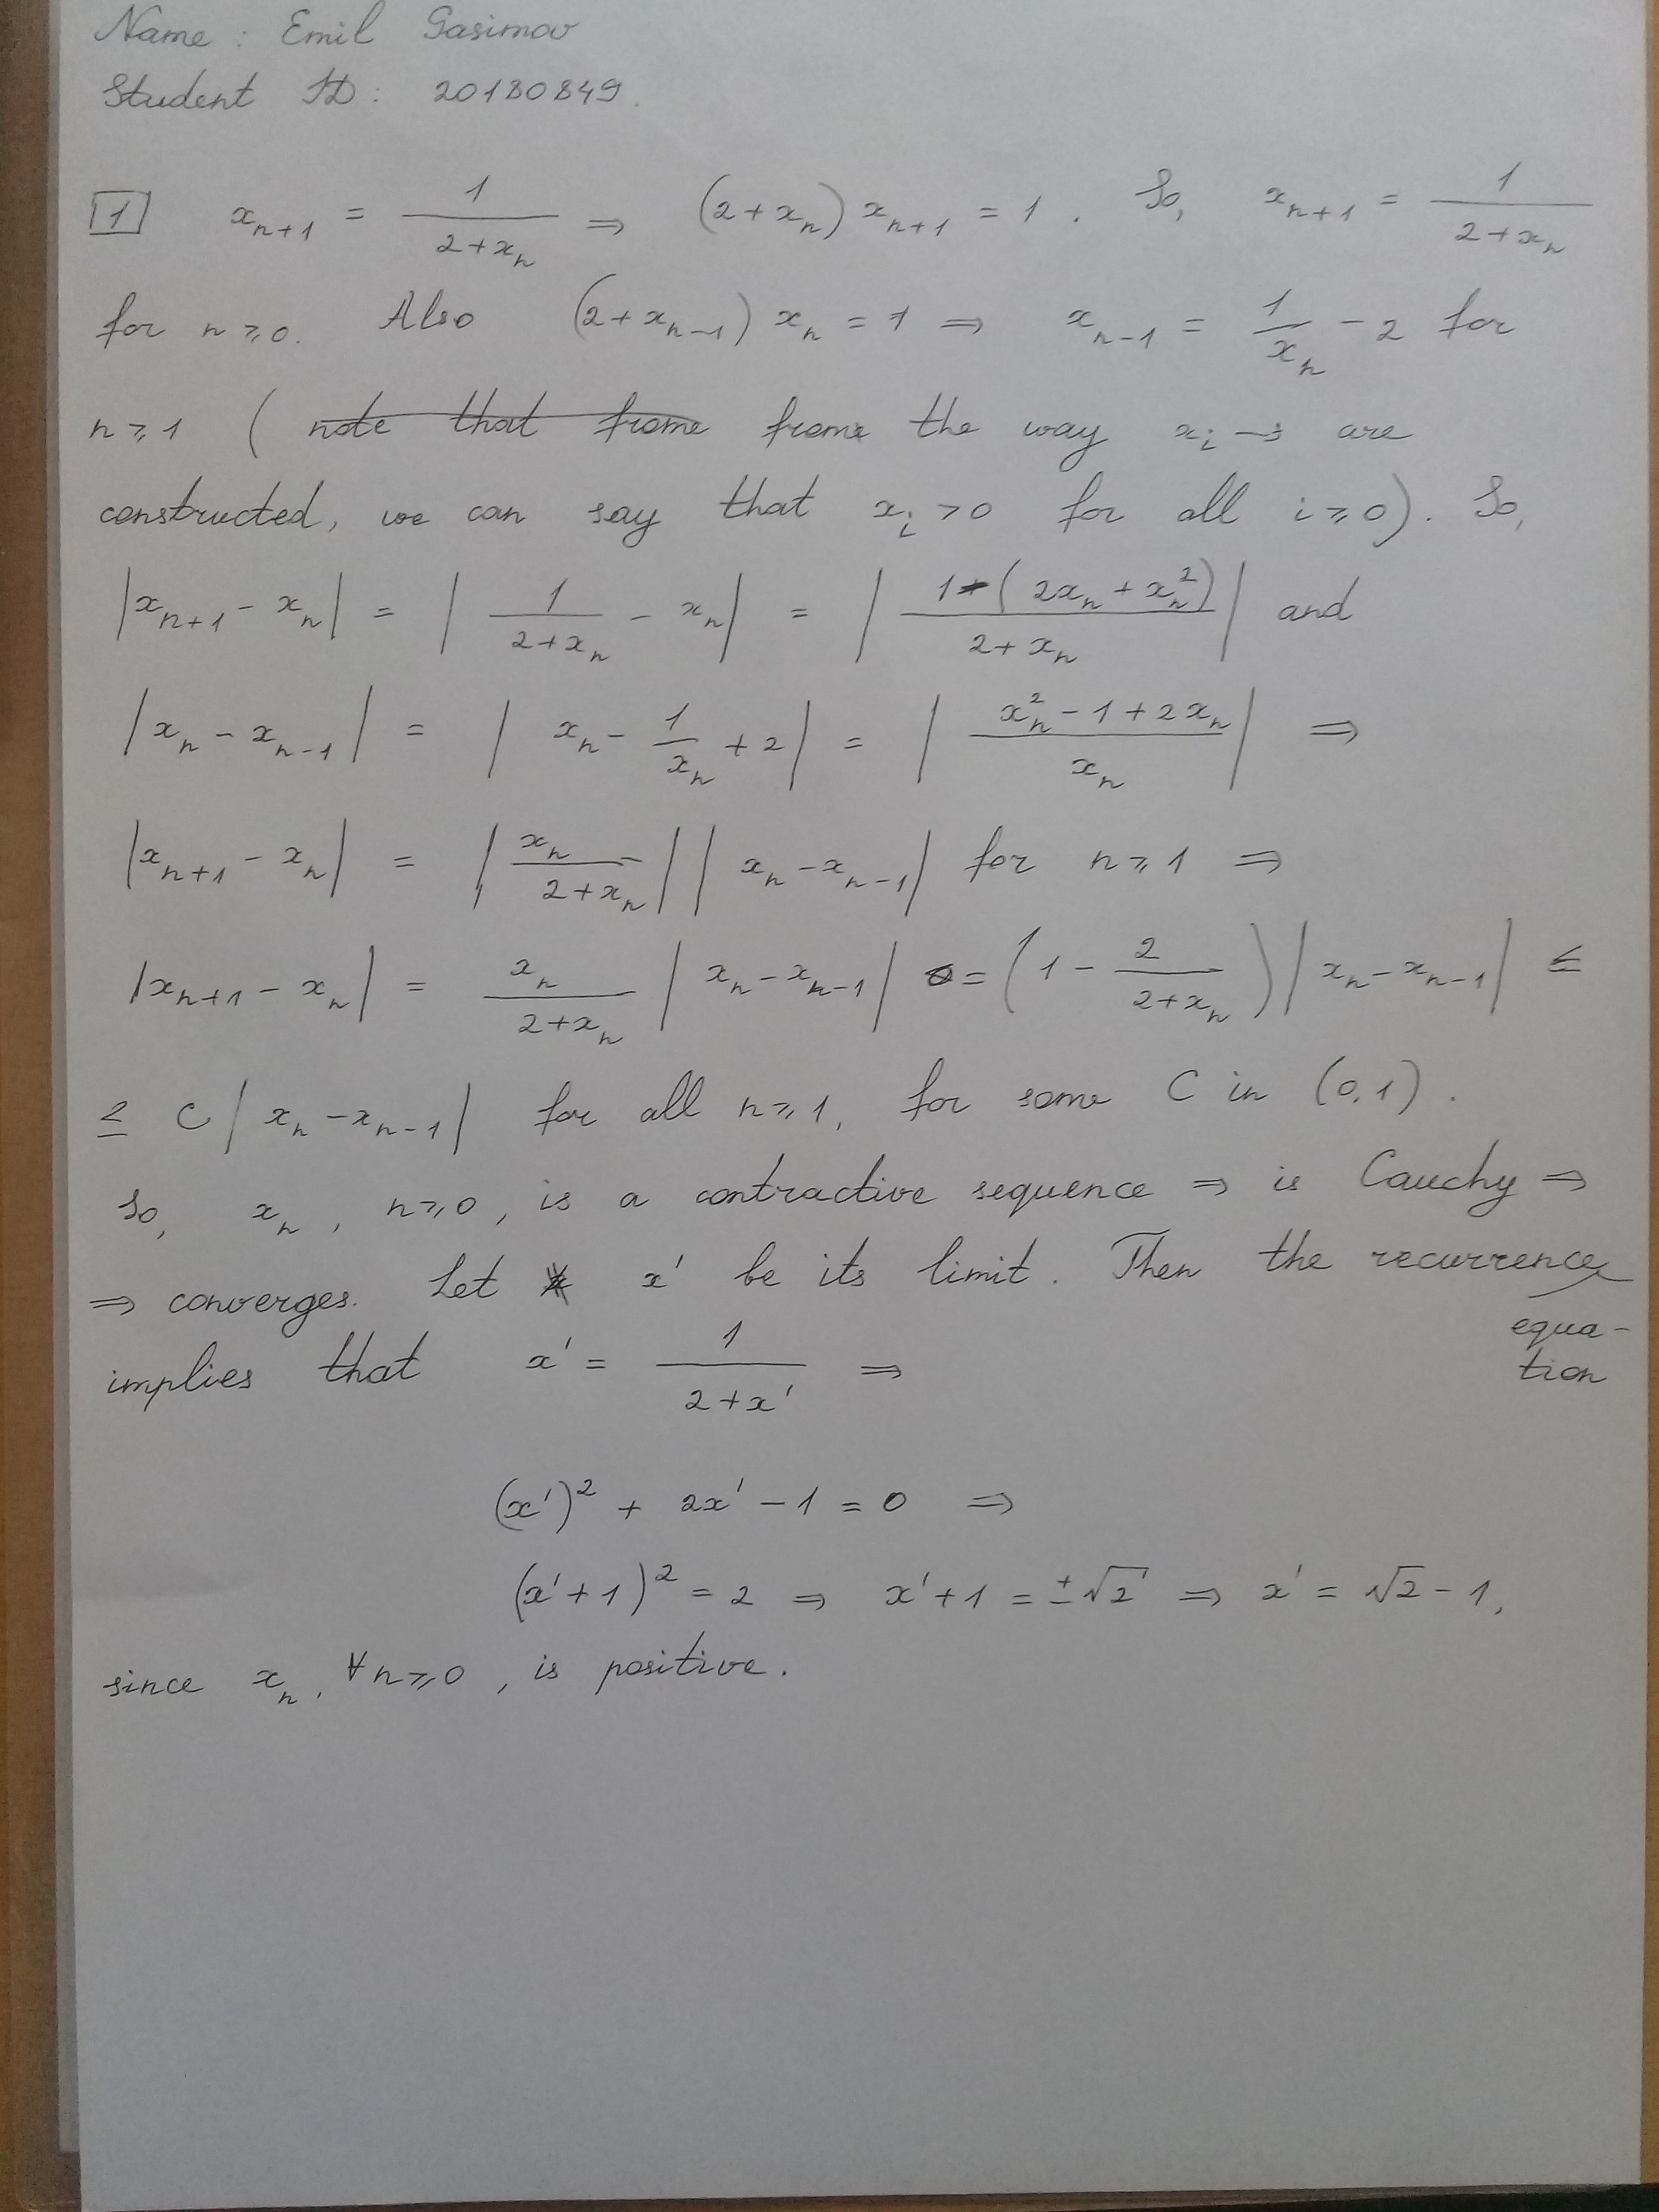 Name : Emil Gasimov
Student ID : 20180849.
1 x_{n+1} = 1/(2+x_n) ⇒ (2+x_n) x_{n+1} = 1 . So, x_{n+1} = 1/(2+x_n)
for n ≥ 0. Also (2+x_{n-1}) x_n = 1 ⇒ x_{n-1} = 1/x_n - 2 for
n ≥ 1 ( ~~note that frome~~ frome the way x_i -s are
constructed, we can say that x_i > 0 for all i ≥ 0). So,
|x_{n+1} - x_n| = | 1/(2+x_n) - x_n | = | (1 - (2x_n + x_n^2))/(2+x_n) | and
|x_n - x_{n-1}| = | x_n - 1/x_n + 2 | = | (x_n^2 - 1 + 2x_n)/x_n | ⇒
|x_{n+1} - x_n| = | x_n/(2+x_n) | | x_n - x_{n-1} | for n ≥ 1 ⇒
|x_{n+1} - x_n| = x_n/(2+x_n) | x_n - x_{n-1} | = (1 - 2/(2+x_n)) | x_n - x_{n-1} | ≤
≤ C | x_n - x_{n-1} | for all n ≥ 1, for some C in (0,1) .
So, x_n , n ≥ 0, is a contractive sequence ⇒ is Cauchy ⇒
⇒ converges. Let x' be its limit. Then the recurrence
equa-
tion
implies that x' = 1/(2+x') ⇒
(x')^2 + 2x' - 1 = 0 ⇒
(x'+1)^2 = 2 ⇒ x'+1 = ±√2 ⇒ x' = √2 - 1,
since x_n, ∀n ≥ 0 , is positive.